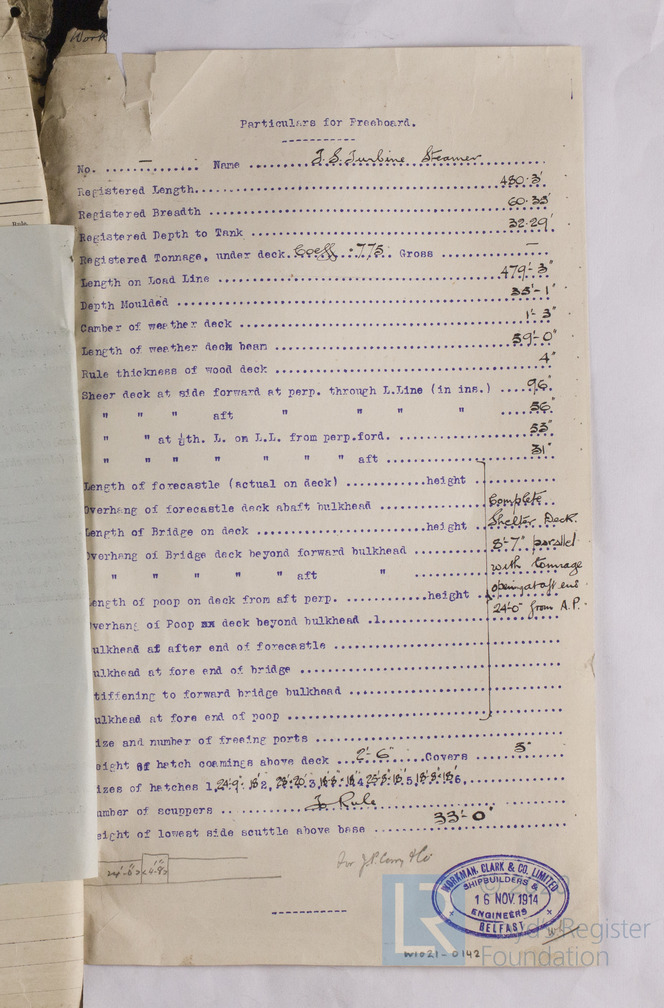 Work
Particulars for Freeboard.
No. ..... – ..... Name ..... T.S. Turbine Steamer .....
Registered Length..... 480·3'
Registered Breadth ..... 60·35'
Registered Depth to Tank ..... 32·29'
Registered Tonnage, under deck. Coeff ·775 .. Gross ..... –
Length on Load Line ..... 479'-3"
Depth Moulded ..... 35'-1"
Camber of weather deck ..... 1'-3"
Length of weather deck beam ..... 59'-0"
Rule thickness of wood deck ..... 4"
Sheer deck at side forward at perp. through L.Line (in ins.) .... 96"
" " " aft " " " " ..... 56"
" " at ⅛th. L. on L.L. from perp.ford. ..... 53"
" " " " " " " aft ..... 31"
Length of forecastle (actual on deck) ..... height
Overhang of forecastle deck abaft bulkhead ..... Complete
Length of Bridge on deck ..... height . Shelter Deck
Overhang of Bridge deck beyond forward bulkhead ..... 8'-7" parallel
" " " " " aft " ..... with tonnage
Length of poop on deck from aft perp. ..... height . opening at aft end
verhang of Poop deck beyond bulkhead .1..... 24'-0" from A.P.
ulkhead at after end of forecastle .....
ulkhead at fore end of bridge .....
tiffening to forward bridge bulkhead .....
ulkhead at fore end of poop .....
ize and number of freeing ports .....
eight of hatch coamings above deck ... 2'-6" ..... Covers ..... 3"
izes of hatches 1, 24'-9" · 18' 2, 3, 4, 5, 6,
umber of scuppers ..... To Rule .....
eight of lowest side scuttle above base ..... 33'-0"
For J.P. Corry & Co
WORKMAN, CLARK & CO. LIMITED
SHIPBUILDERS &
16 NOV. 1914
ENGINEERS
BELFAST
LR
Lloyd's Register
Foundation
W1021-0142